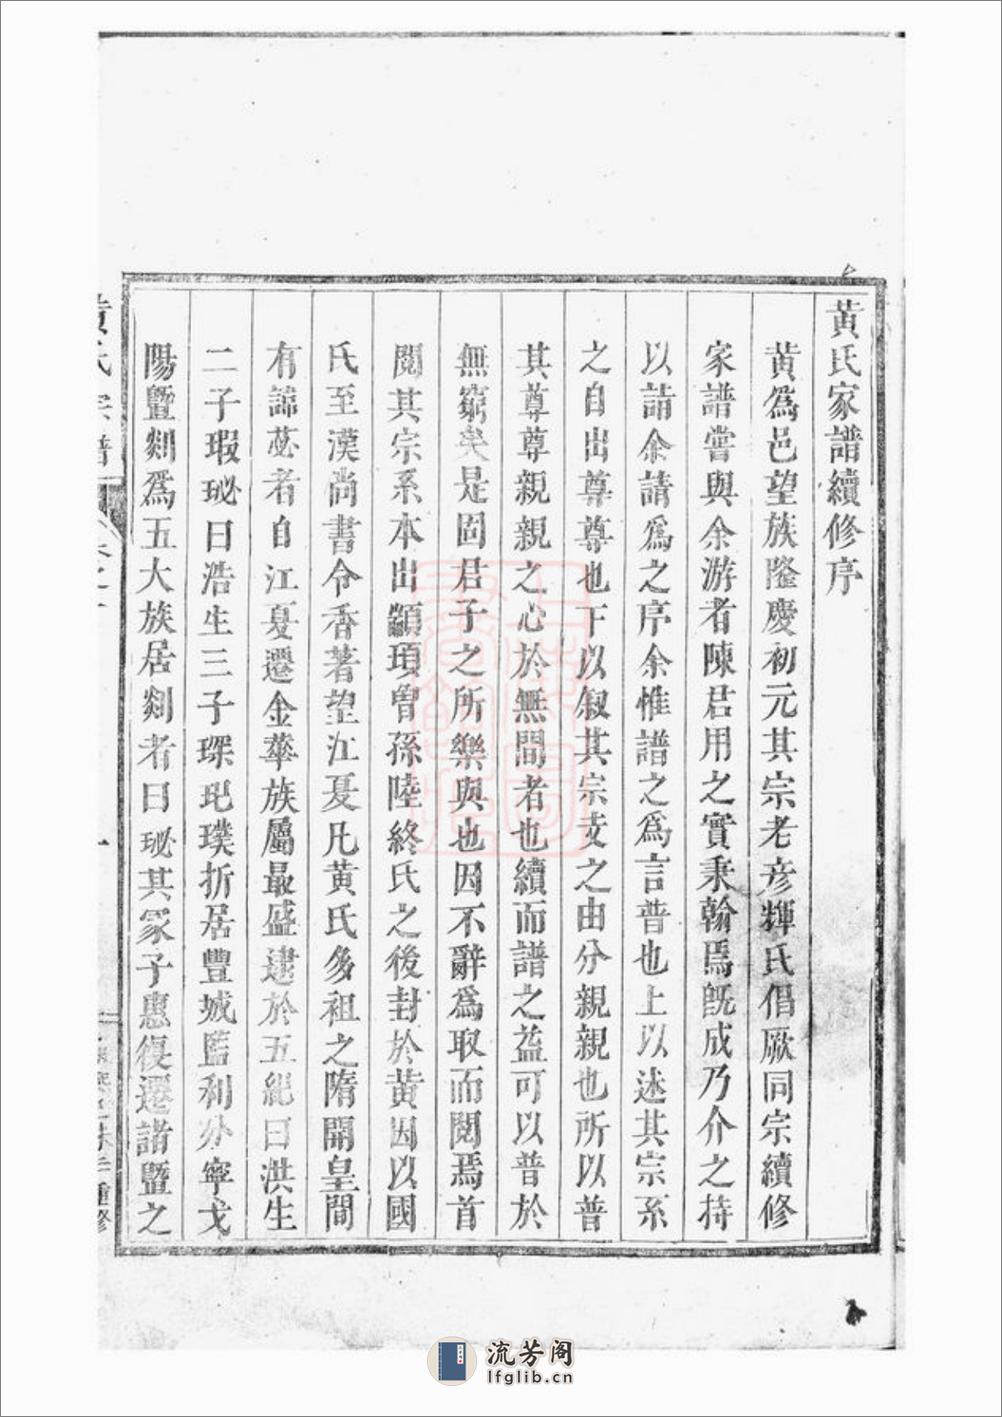 黃氏家譜續修序
黃爲邑望族隆慶初元其宗老彥輝氏倡厥同宗續修
家譜嘗與余游者陳君用之實秉翰焉既成乃介之持
以請余請爲之序余惟譜之爲言普也上以述其宗系
之自出尊尊也下以叙其宗支之由分親親也所以普
其尊尊親親之心於無間者也續而譜之益可以普於
無窮矣是固君子之所樂與也因不辭爲取而閱焉首
閱其宗系本出顓頊曾孫陸終氏之後封於黃因以國
氏至漢尚書令香著望江夏凡黃氏多祖之隋開皇間
有諦苾者自江夏遷金華族屬最盛逮於五紀曰洪生
二子瑕珌曰浩生三子琛玘璞折居豐城監利分寧弋
陽暨剡爲五大族居剡者曰珌其冢子惠復遷諸暨之
黃氏宗譜
卷之一
一
重修
流芳阁
lfglib.cn